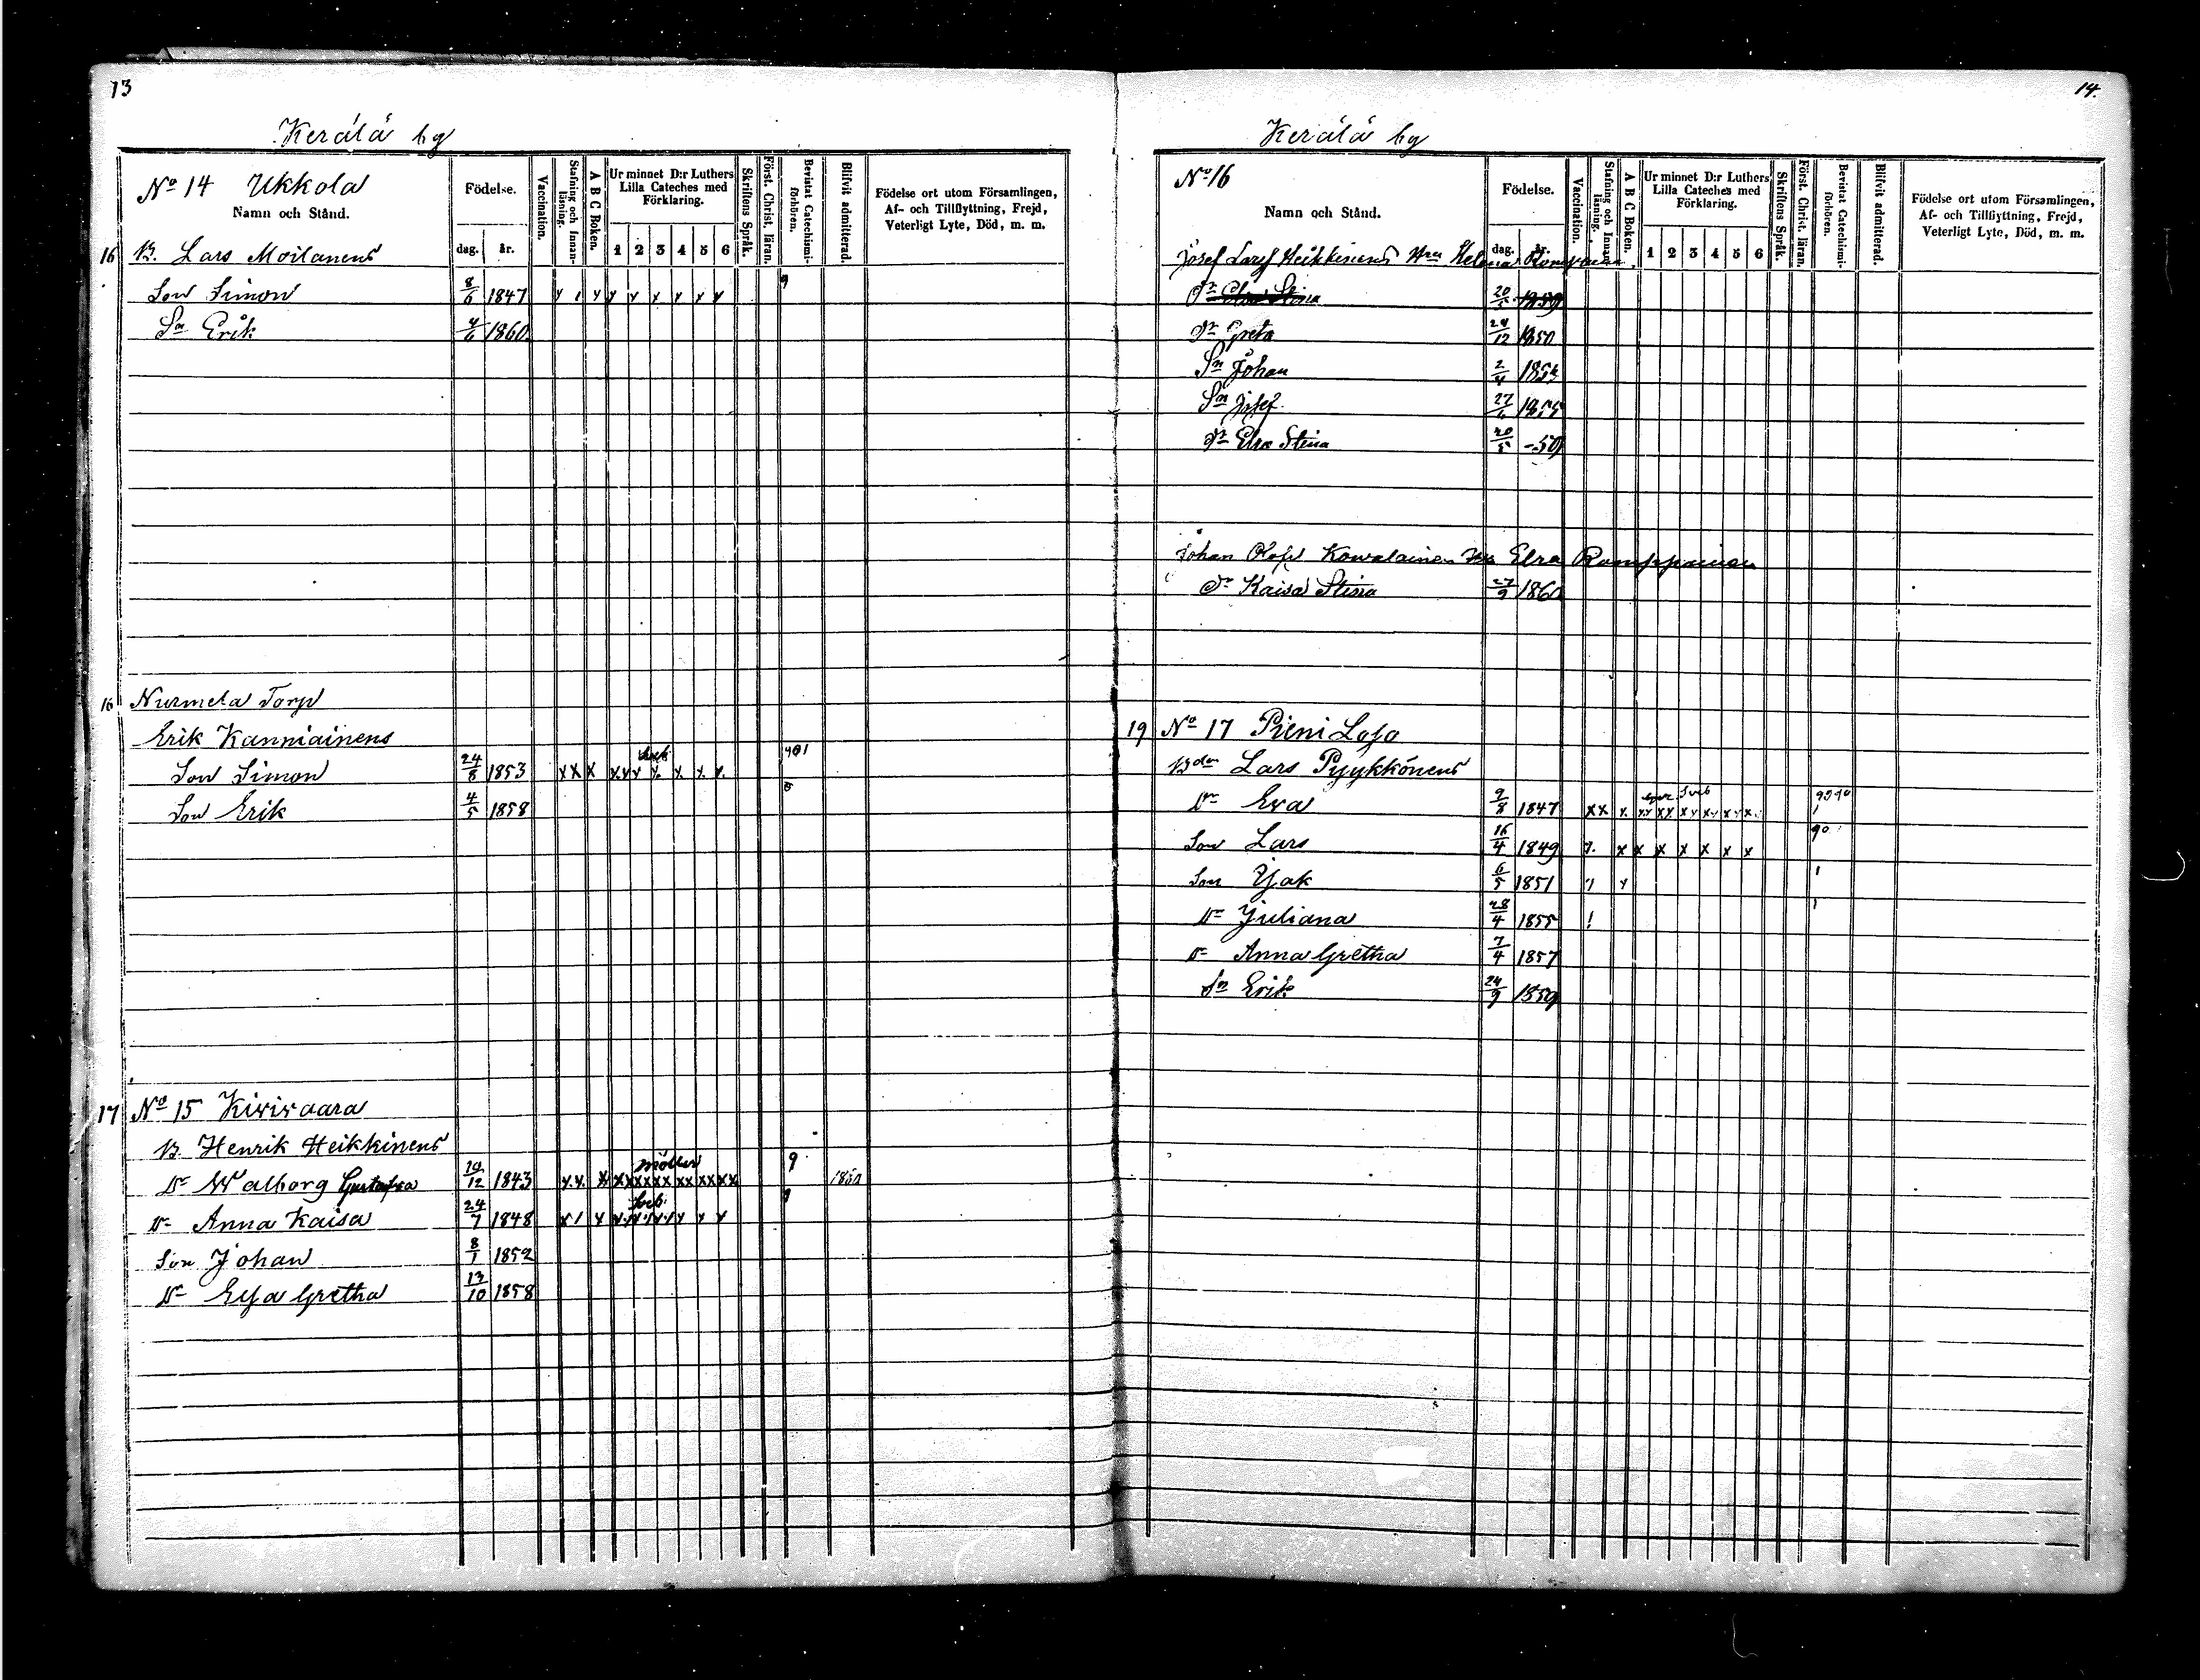 13
Kerälä by
No 14 Ukkola
Namn och Stånd.
Födelse.
dag. år.
Vaccination.
Stafning och Innanläsning.
A B C Boken.
Ur minnet D:r Luthers Lilla Cateches med Förklaring.
1 2 3 4 5 6
Skriftens Språk.
Först. Christ. läran.
Bevistat Catechismiförhören.
Blifvit admitterad.
Födelse ort utom Församlingen, Af- och Tillflyttning, Frejd, Veterligt Lyte, Död, m. m.
16 B. Lars Moilanens
Son Simon 8/6 1847
Sn Erik 4/6 1860
16 Nurmela Torp
Erik Kanniainens
Son Simon 24/8 1853
Son Erik 4/5 1858
17 No 15 Kivivaara
B. Henrik Heikkinens
Dr Walborg Gustafva 12 1843 möller 9
Dr Anna Kaisa 24/7 1848
Son Johan 8/1 1852
Dr Eva Gretha 13/10 1858
14.
Kerälä by
No 16
Namn och Stånd.
Födelse.
dag. år.
Vaccination.
Stafning och Innanläsning.
A B C Boken.
Ur minnet D:r Luthers Lilla Cateches med Förklaring.
1 2 3 4 5 6
Skriftens Språk.
Först. Christ. läran.
Bevistat Catechismiförhören.
Blifvit admitterad.
Födelse ort utom Församlingen, Af- och Tillflyttning, Frejd, Veterligt Lyte, Död, m. m.
Josef Heikkinens Helena
Dr Stina 20/5 1859
Dr Greta 12 1850
Sn Johan 2/4
Sn Josef 27/6 1855
Dr Elsa Stina 20/5 -59
Johan Kowalainen Elsa Romppainen
Dr Kaisa Stina 27/9
19 No 17 Pieni Lafo
Bden Lars Pyykkönens
Dr Eva 9/8 1847
Son Lars 16/4 1849
Son Isak 6/5 1851
Dr Juliana 28/4 1855
Dr Anna Gretha 7/4 1857
Sn Erik 24/9 1859